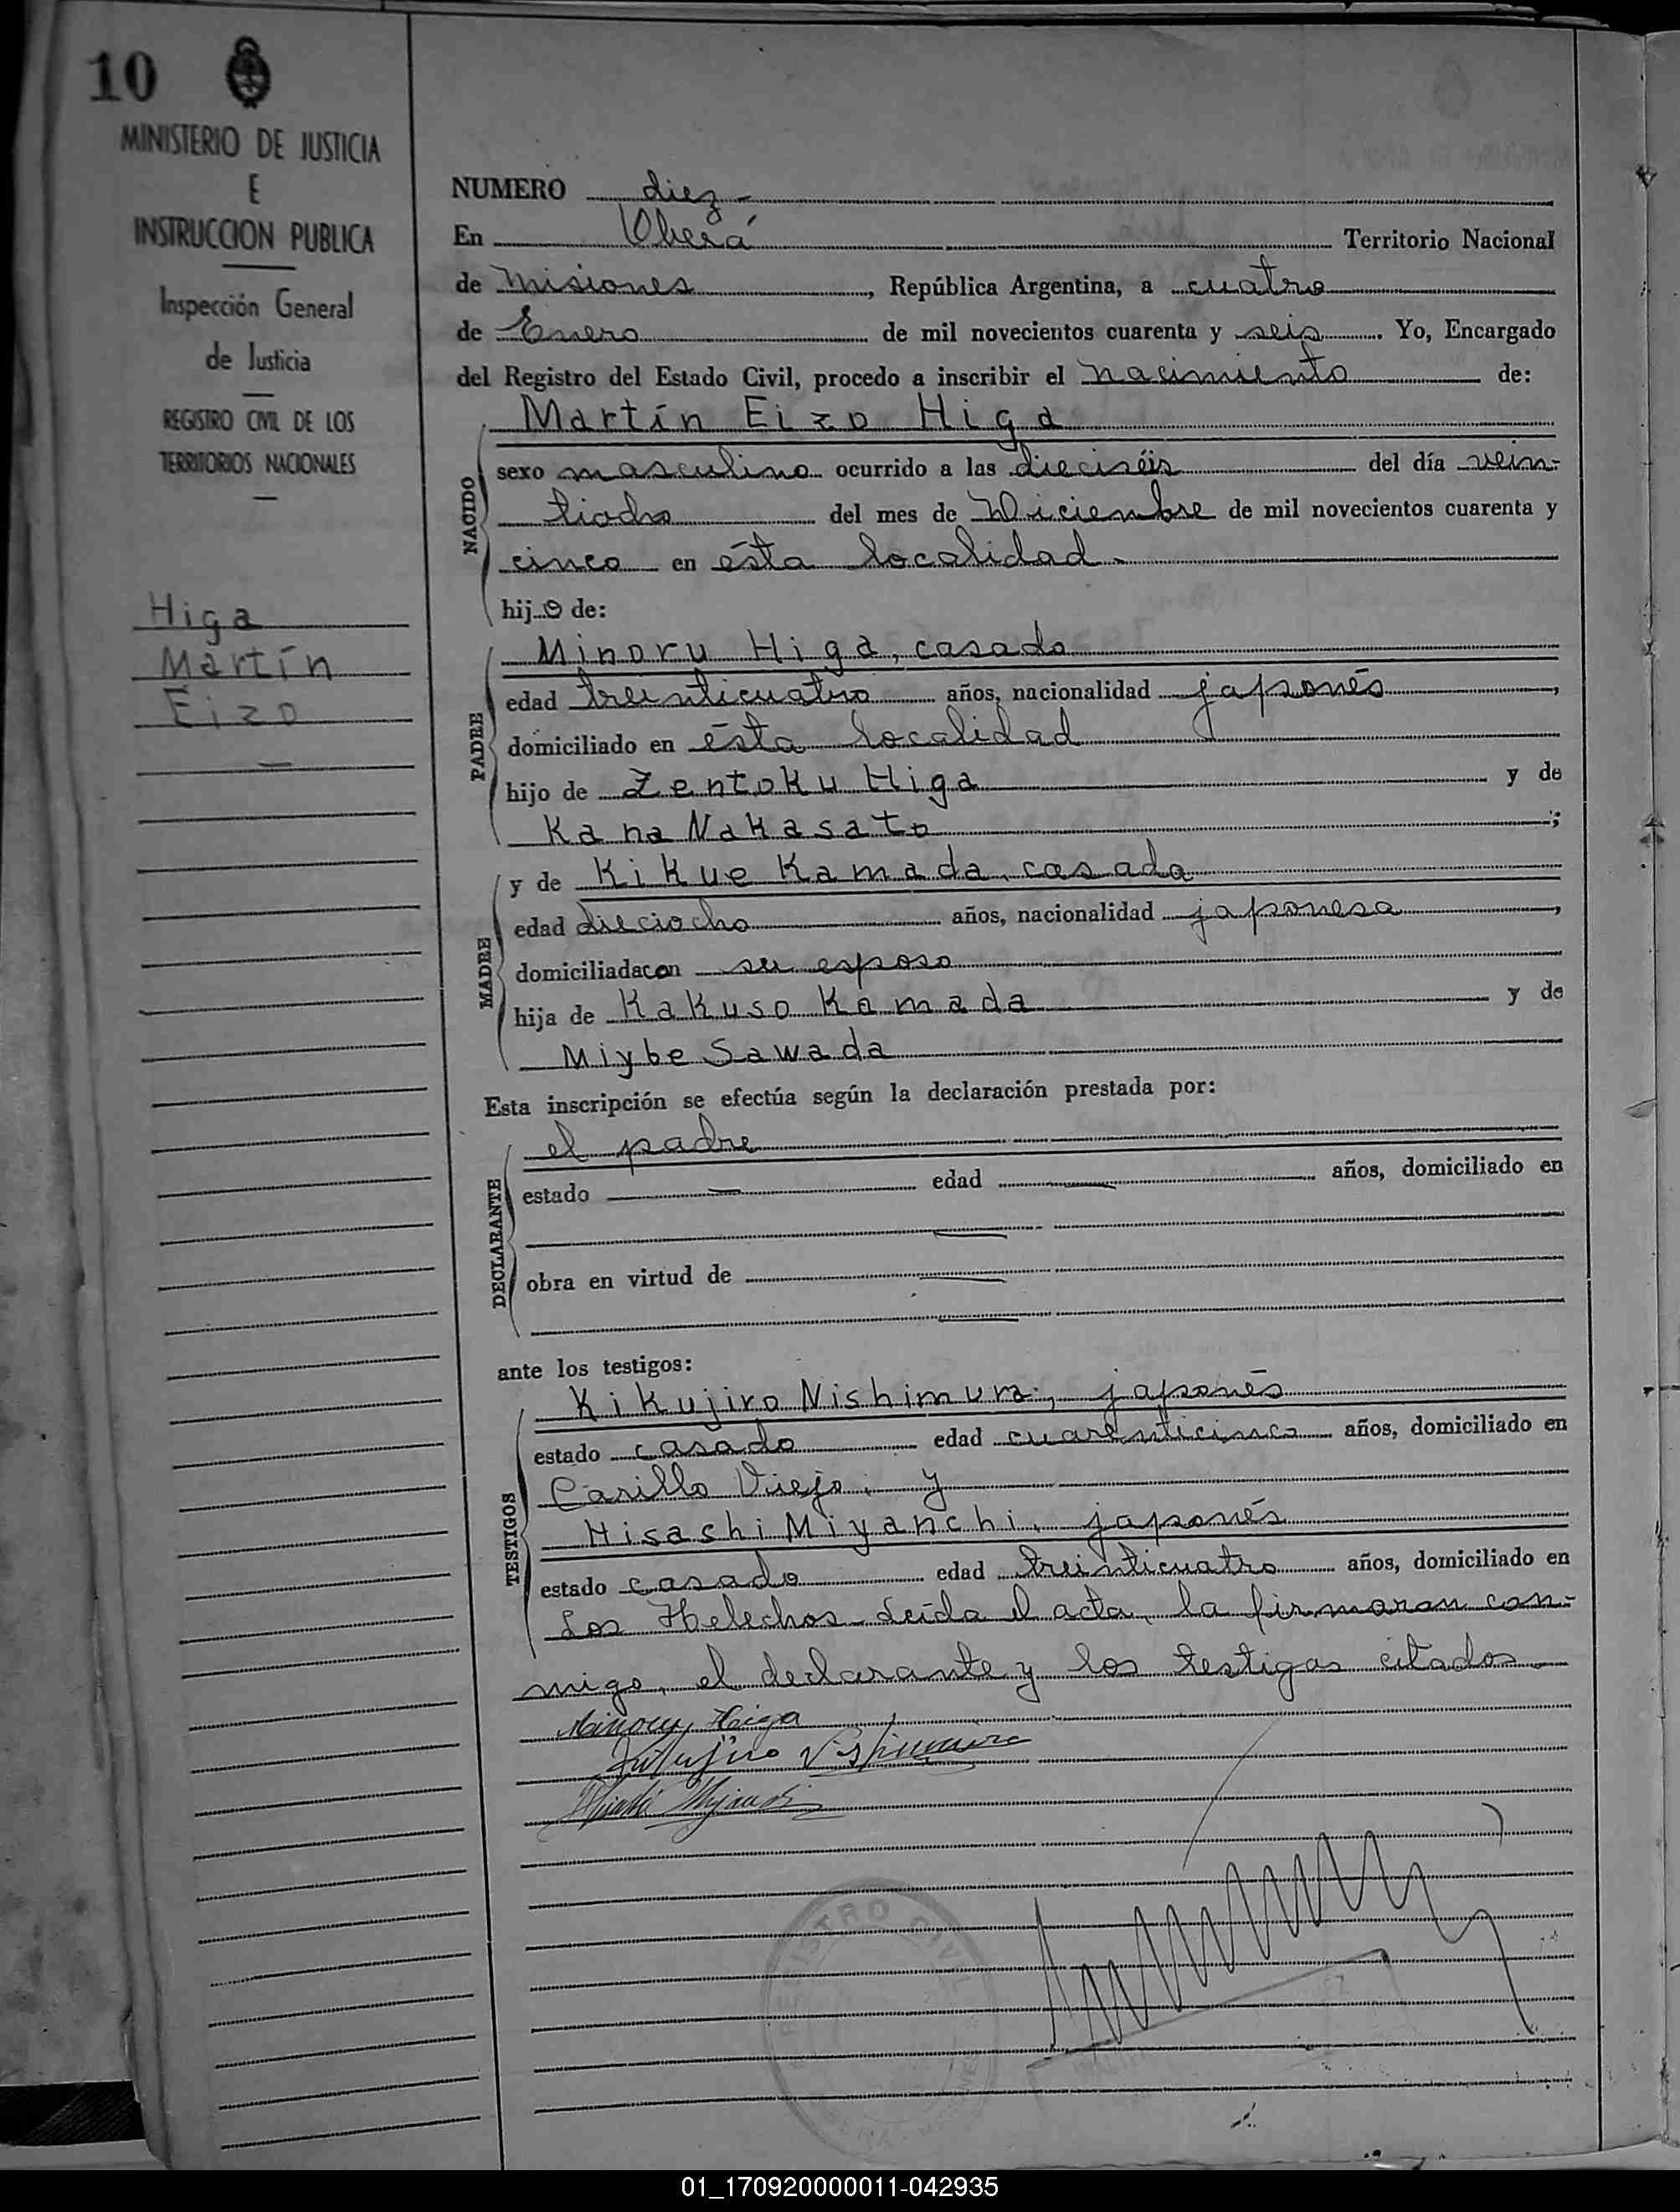 10
MINISTERIO DE JUSTICIA
E
INSTRUCCION PUBLICA
Inspección General
de Justicia
REGISTRO CIVIL DE LOS
TERRITORIOS NACIONALES
Higa
Martín
Eizo
NUMERO diez
En Oberá Territorio Nacional
de Misiones, República Argentina, a cuatro
de Enero de mil novecientos cuarenta y seis. Yo, Encargado
del Registro del Estado Civil, procedo a inscribir el nacimiento de:
NACIDO
Martín Eizo Higa
sexo masculino ocurrido a las dieciséis del día vein-
tiocho del mes de Diciembre de mil novecientos cuarenta y
cinco en ésta localidad.
hijo de:
PADRE
Minoru Higa, casado
edad treinticuatro años, nacionalidad japonés,
domiciliado en ésta localidad
hijo de Zentoku Higa y de
Kana Nakasato;
MADRE
y de Kikue Kamada, casada
edad dieciocho años, nacionalidad japonesa,
domiciliada con su esposo
hija de Kakuso Kamada y de
Miybe Sawada
Esta inscripción se efectúa según la declaración prestada por:
DECLARANTE
el padre
estado — edad — años, domiciliado en
—
obra en virtud de —
—
ante los testigos:
TESTIGOS
Kikujiro Nishimura, japonés
estado casado edad cuarenticinco años, domiciliado en
Carillo Viejo, y
Hisashi Miyanchi, japonés
estado casado edad treinticuatro años, domiciliado en
Los Helechos. Leída el acta, la firmaron con-
migo, el declarante y los testigos citados
Minoru Higa
Kikujiro Nishimura
REGISTRO CIVIL
01_170920000011-042935